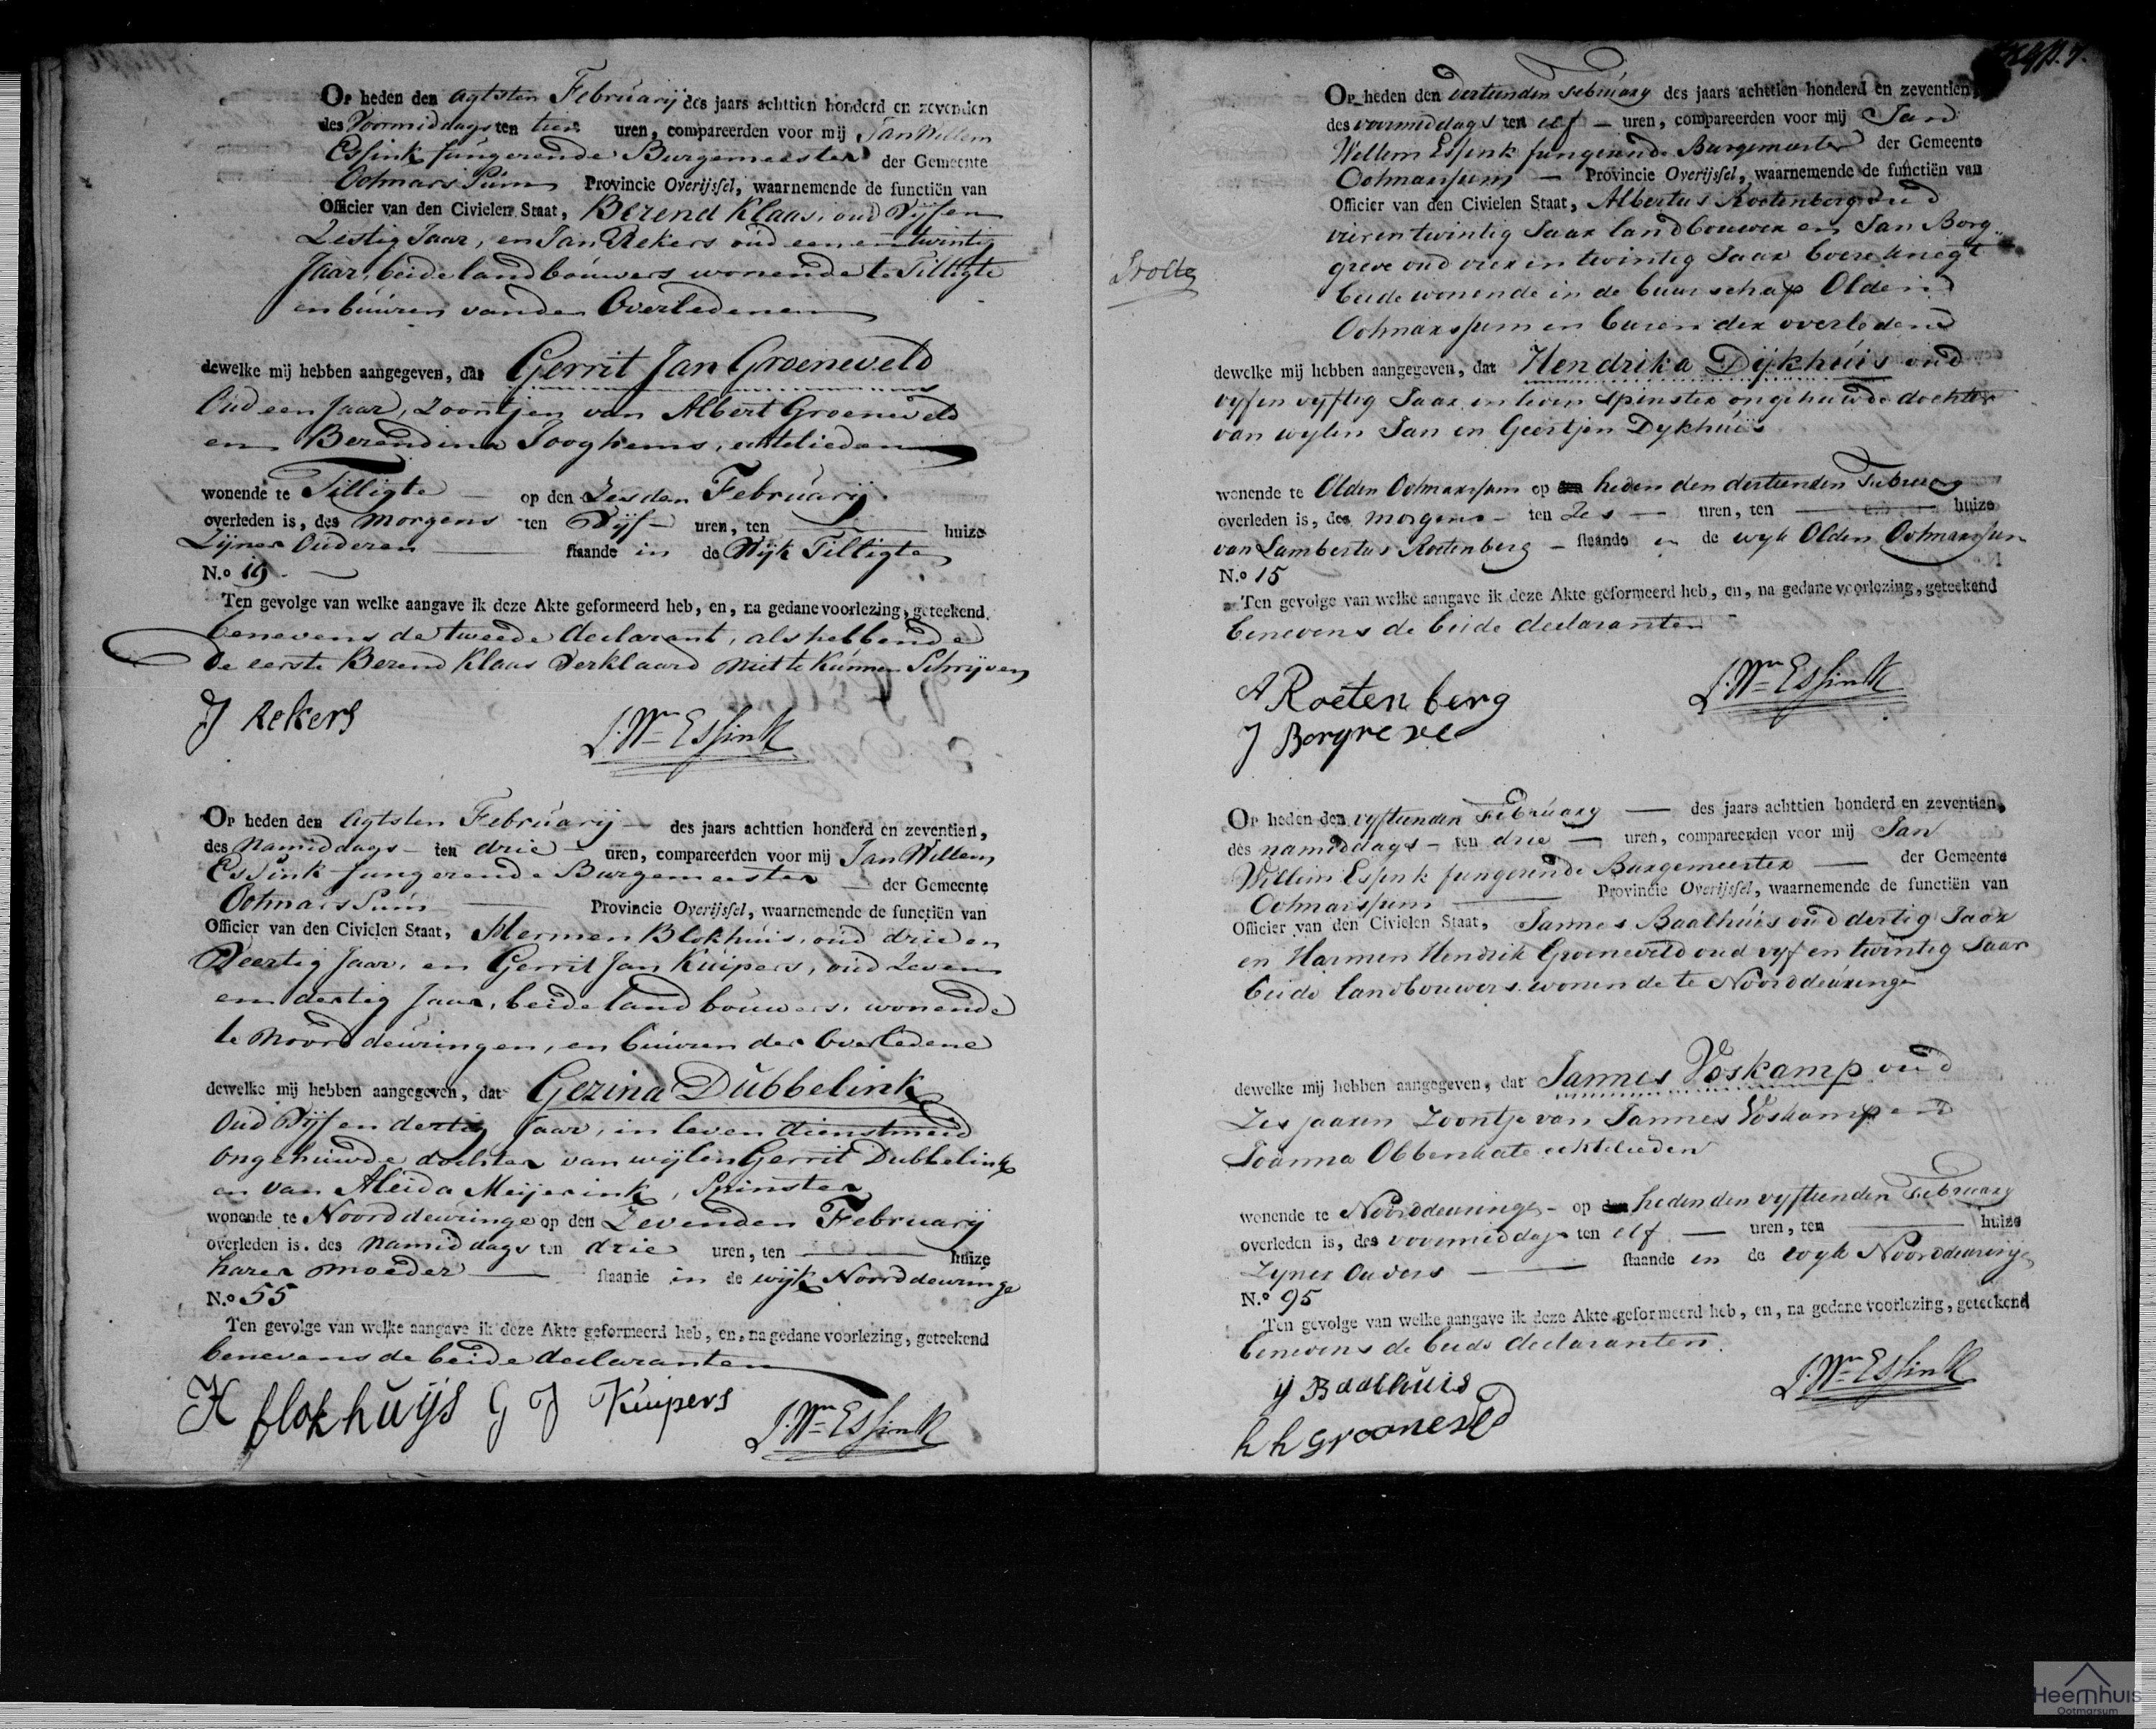 Op heden den agtsten Februarij des jaars achttien honderd en zevenden
des Voormiddags ten tien uren, compareerden voor mij Jan Willem
Essink fungerende Burgemeester der Gemeente
Ootmarssum Provincie Overijssel, waarnemende de functiën van
Officier van den Civielen Staat, Berend Klaas, oud Vijf en
Zestig Jaar, en Jan Rekers oud een en twintig
Jaar, beide landbouwers wonende te Tilligte
en buuren van den Overledenen
dewelke mij hebben aangegeven, dat Gerrit Jan Groeneveld
Oud een Jaar, Zoontjen van Albert Groeneveld
en Berendina Jooghems, echtelieden
wonende te Tilligte op den Zesden Februarij
overleden is, des morgens ten Vijf uren, ten huize
Zijner Ouderen staande in de Wijk Tilligte
N.o 19
Ten gevolge van welke aangave ik deze Akte geformeerd heb, en, na gedane voorlezing, geteekend
benevens de tweede declarant, als hebbende
de eerste Berend Klaas Verklaard niet te kunnen Schrijven
J Rekers
J. Wm Essink
Op heden den Agtsten Februarij des jaars achttien honderd en zeventien,
des Namiddags ten drie uren, compareerden voor mij Jan Willem
Essink fungerende Burgemeester der Gemeente
Ootmarssum Provincie Overijssel, waarnemende de functiën van
Officier van den Civielen Staat, Hermen Blokhuis, oud drie en
Veertig Jaar, en Gerrit Jan Kuipers, oud Zeven
en dertig Jaar, beide landbouwers, wonende
te Noorddeuringen, en buuren der Overledene
dewelke mij hebben aangegeven, dat Gezina Dubbelink
Oud Vijf en dertig Jaar, in leven dienstmeid
Ongehuwde dochter van wijlen Gerrit Dubbelink
en van Aleida Meijerink, Spinster
wonende te Noorddeuringe op den Zevenden Februarij
overleden is, des Namiddags ten drie uren, ten huize
harer moeder staande in de wijk Noorddeuringe
N.o 55
Ten gevolge van welke aangave ik deze Akte geformeerd heb, en, na gedane voorlezing, geteekend
benevens de beide declaranten
H blokhuijs G J Kuipers
J. Wm Essink
Op heden den dertienden February des jaars achttien honderd en zeventien,
des voormiddags ten elf uren, compareerden voor mij Jan
Willem Essink fungerende Burgemeester der Gemeente
Ootmarssum Provincie Overijssel, waarnemende de functiën van
Officier van den Civielen Staat, Albertus Roetenberg oud
vier en twintig Jaar landbouwer en Jan Borg
greve oud vier en twintig Jaar boere knegt
beide wonende in de buurschap Olden
Ootmarssum en buren der overledene
dewelke mij hebben aangegeven, dat Hendrika Dijkhuis oud
vyf en vyftig Jaar in leven spinster ongehuwde dochter
van wylen Jan en Geertjen Dykhuis
wonende te Olden Ootmarssum op heden den dertienden February
overleden is, des morgens ten Zes uren, ten huize
van Lambertus Roetenberg staande in de wyk Olden Ootmarssum
N.o 15
Ten gevolge van welke aangave ik deze Akte geformeerd heb, en, na gedane voorlezing, geteekend
benevens de beide declaranten
A Roetenberg
J Borgreve
J. Wm Essink
Op heden den vyftienden February des jaars achttien honderd en zeventien,
des namiddags ten drie uren, compareerden voor mij Jan
Willem Essink fungerende Burgemeester der Gemeente
Ootmarssum Provincie Overijssel, waarnemende de functiën van
Officier van den Civielen Staat, Jannes Baalhuis oud dertig Jaar
en Harmen Hendrik Groeneveld oud vyf en twintig Jaar
beide landbouwers wonende te Noorddeuringe
dewelke mij hebben aangegeven, dat Jannes Voskamp oud
Zes jaaren Zoontje van Jannes Voskamp en
Joanna Obbenkate echtelieden
wonende te Noorddeuringe op heden den vyftienden February
overleden is, des voormiddags ten elf uren, ten huize
Zyner Ouders staande in de wyk Noorddeuringe
N.o 95
Ten gevolge van welke aangave ik deze Akte geformeerd heb, en, na gedane voorlezing, geteekend
benevens de beide declaranten.
J Baalhuis
h h groeneveld
J. Wm Essink
Heemhuis
Ootmarsum